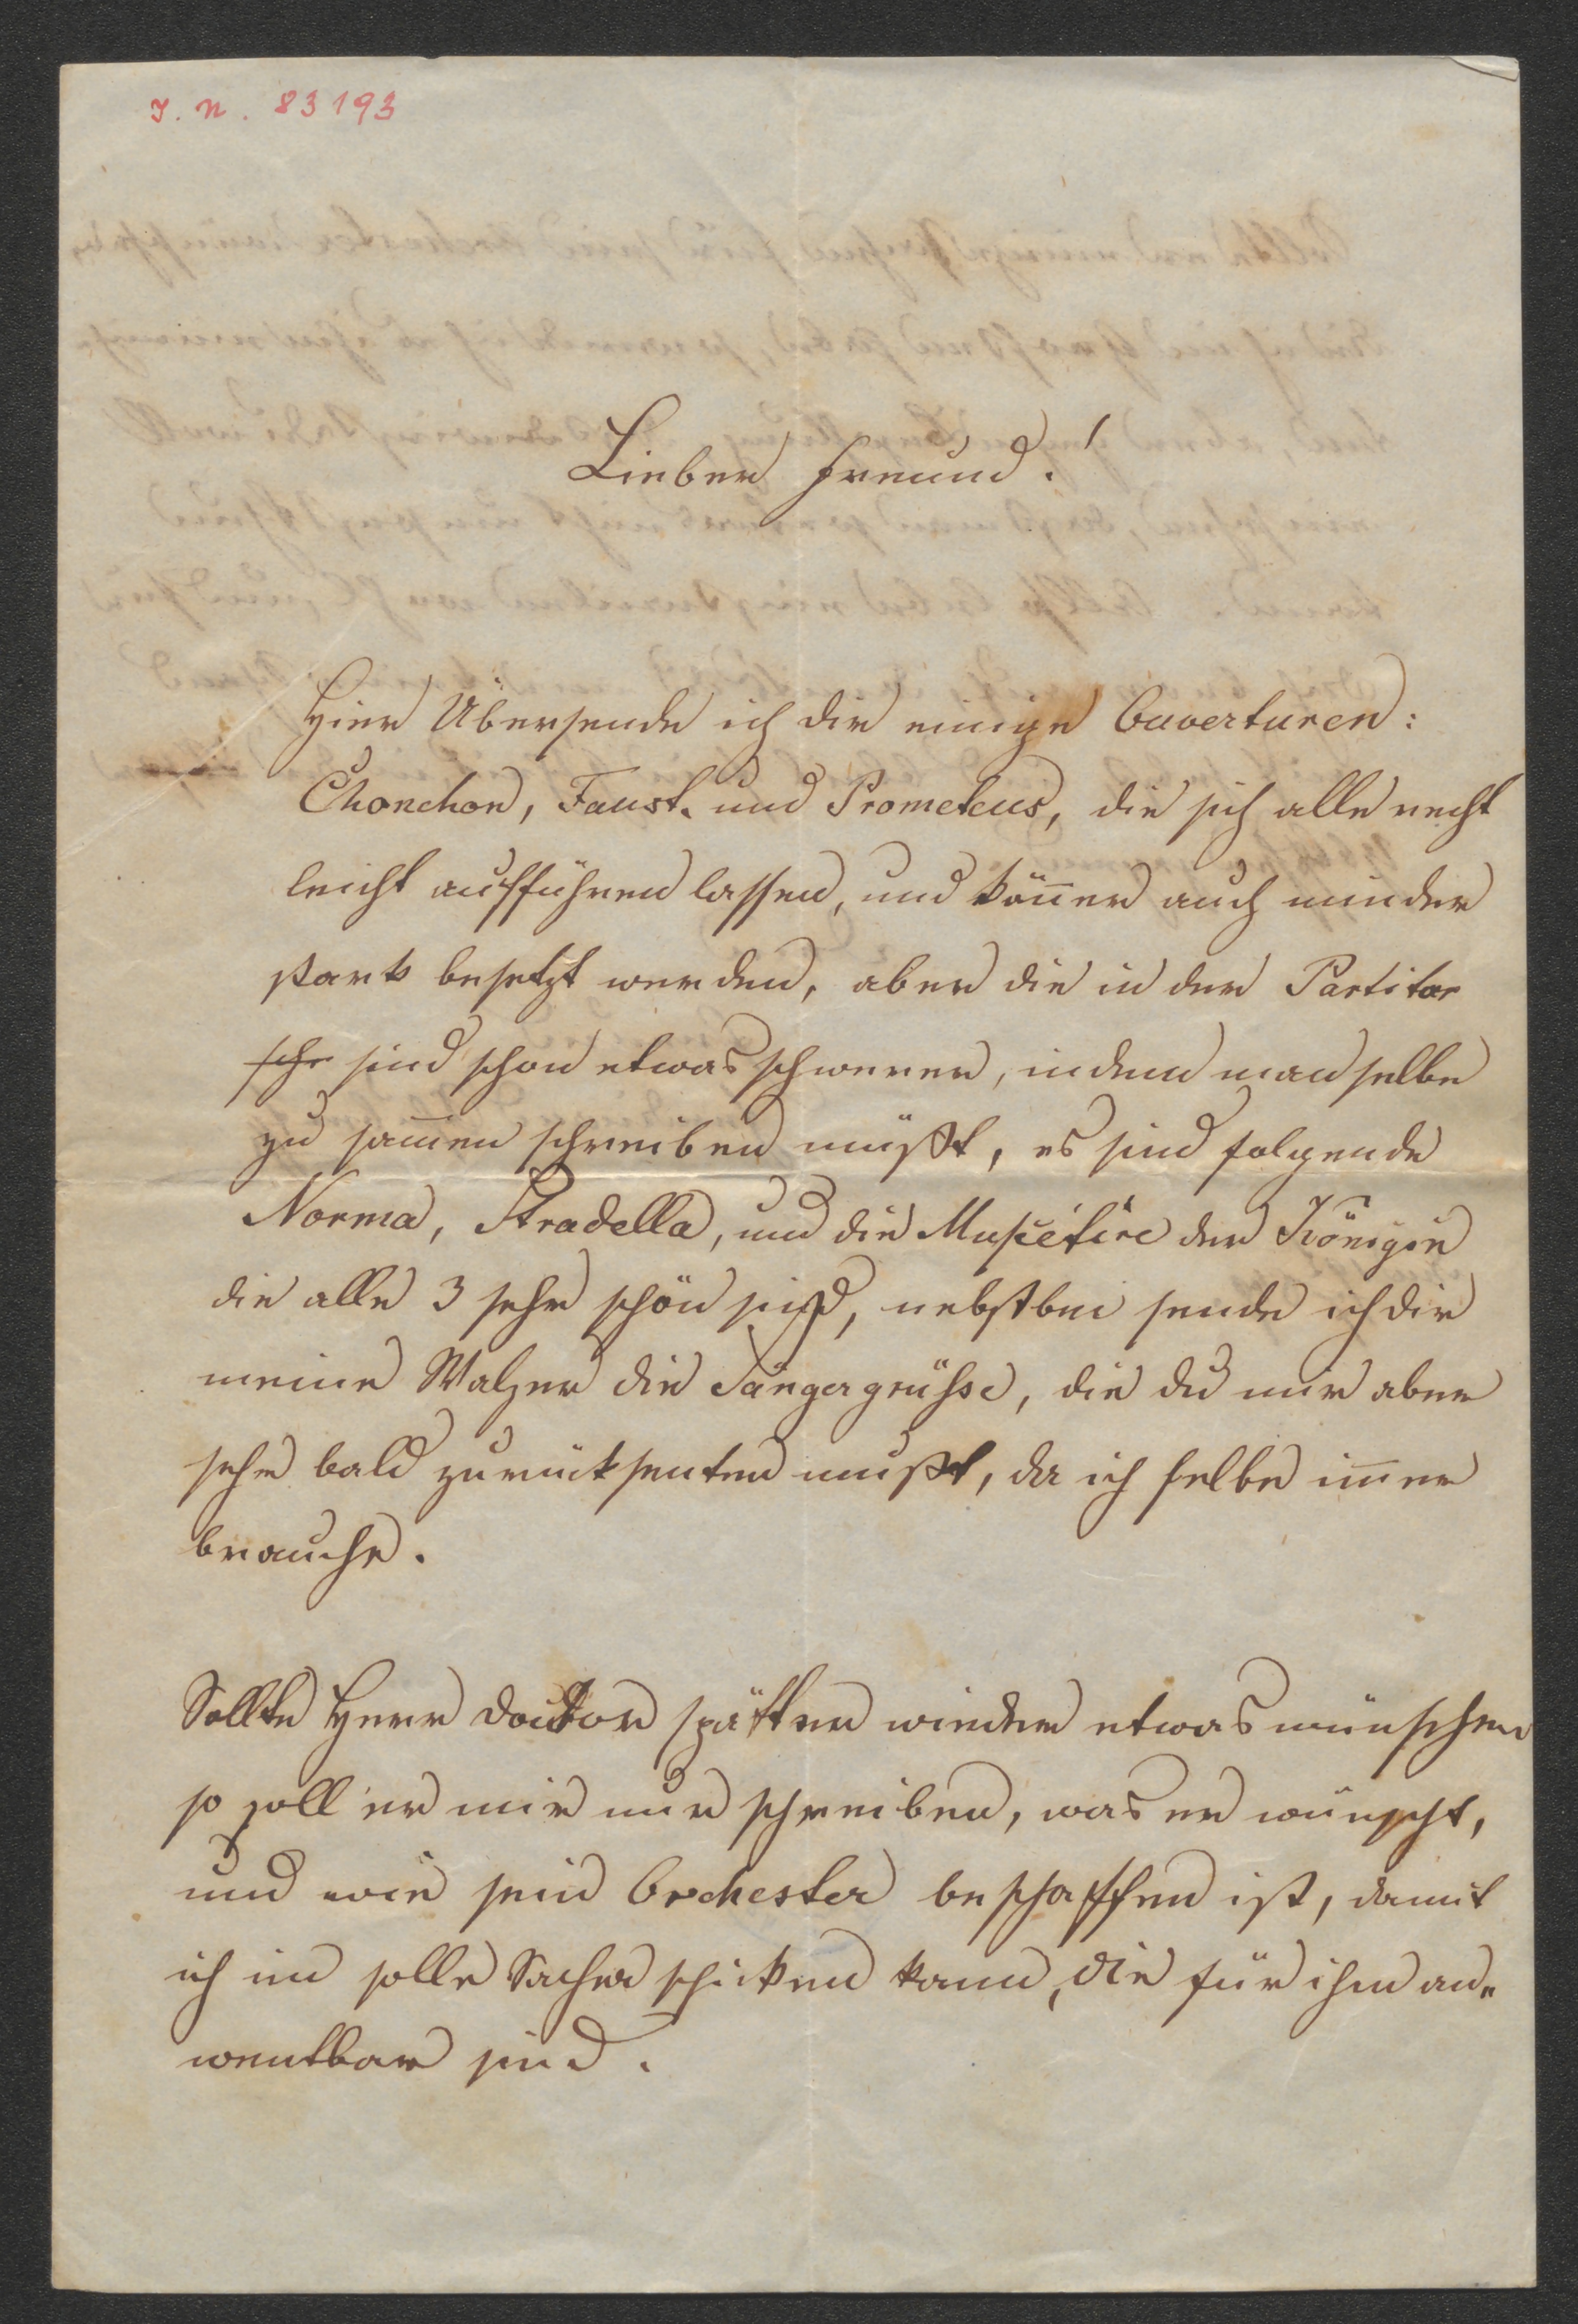 I. N. 83193
Lieber Freund!
Hier Übersende ich dir einige Ouverturen:
Chonchon, Faust. und Prometeus, die sich alle recht
leicht aufführen lassen, und koñen auch minder
stark besetzt werden, aber die in der Partitur
sehr sind schon etwas schwerer, indem man selbe
zu sam̄en schreiben müßt, es sind folgende
Norma, Stradella, und die der Königin
die alle 3 sehr schön sind, nebstbei sende ich dir
meine Walzer die Sängergrüsse, die du mir aber
sehr bald zurücksenten mußt, da ich selbe im̄er
brauche.
Sollte Herr Docktor spätter wieder etwas wünschen
so soll er mir nur schreiben, was er wünscht,
und wie sein Orchester beschaffen ist, damit
ich im solle Sachen schicken kann, die für ihm an-
wentbar sind.